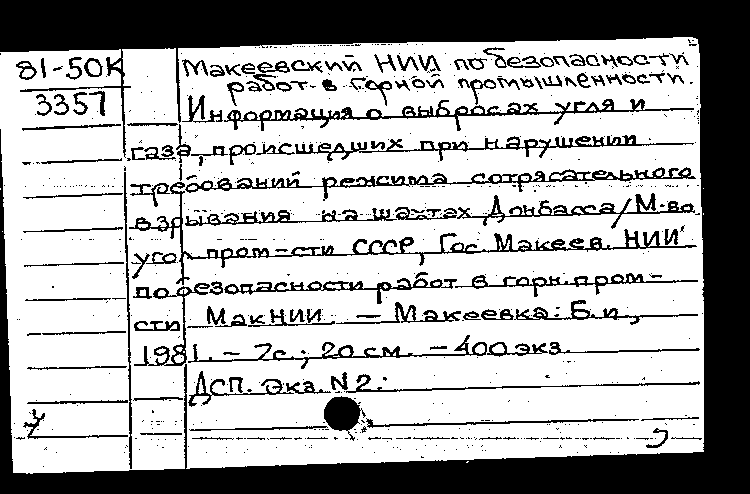 81-50К
3357
Макеевский НИИ по безопасности
работ в горной промышленности.
Информация о выбросах угля и
газа, происшедших при нарушении
требований режима сотрясательного
взрывания на шахтах Донбасса/М-во
угол пром-сти СССР, Гос. Макеев. НИИ
по безопасности работ в горн. пром-
сти МакНИИ. — Макеевка: Б.и.,
1981. – 7с.; 20 см. – 400 экз.
ДСП. Экз. N2.